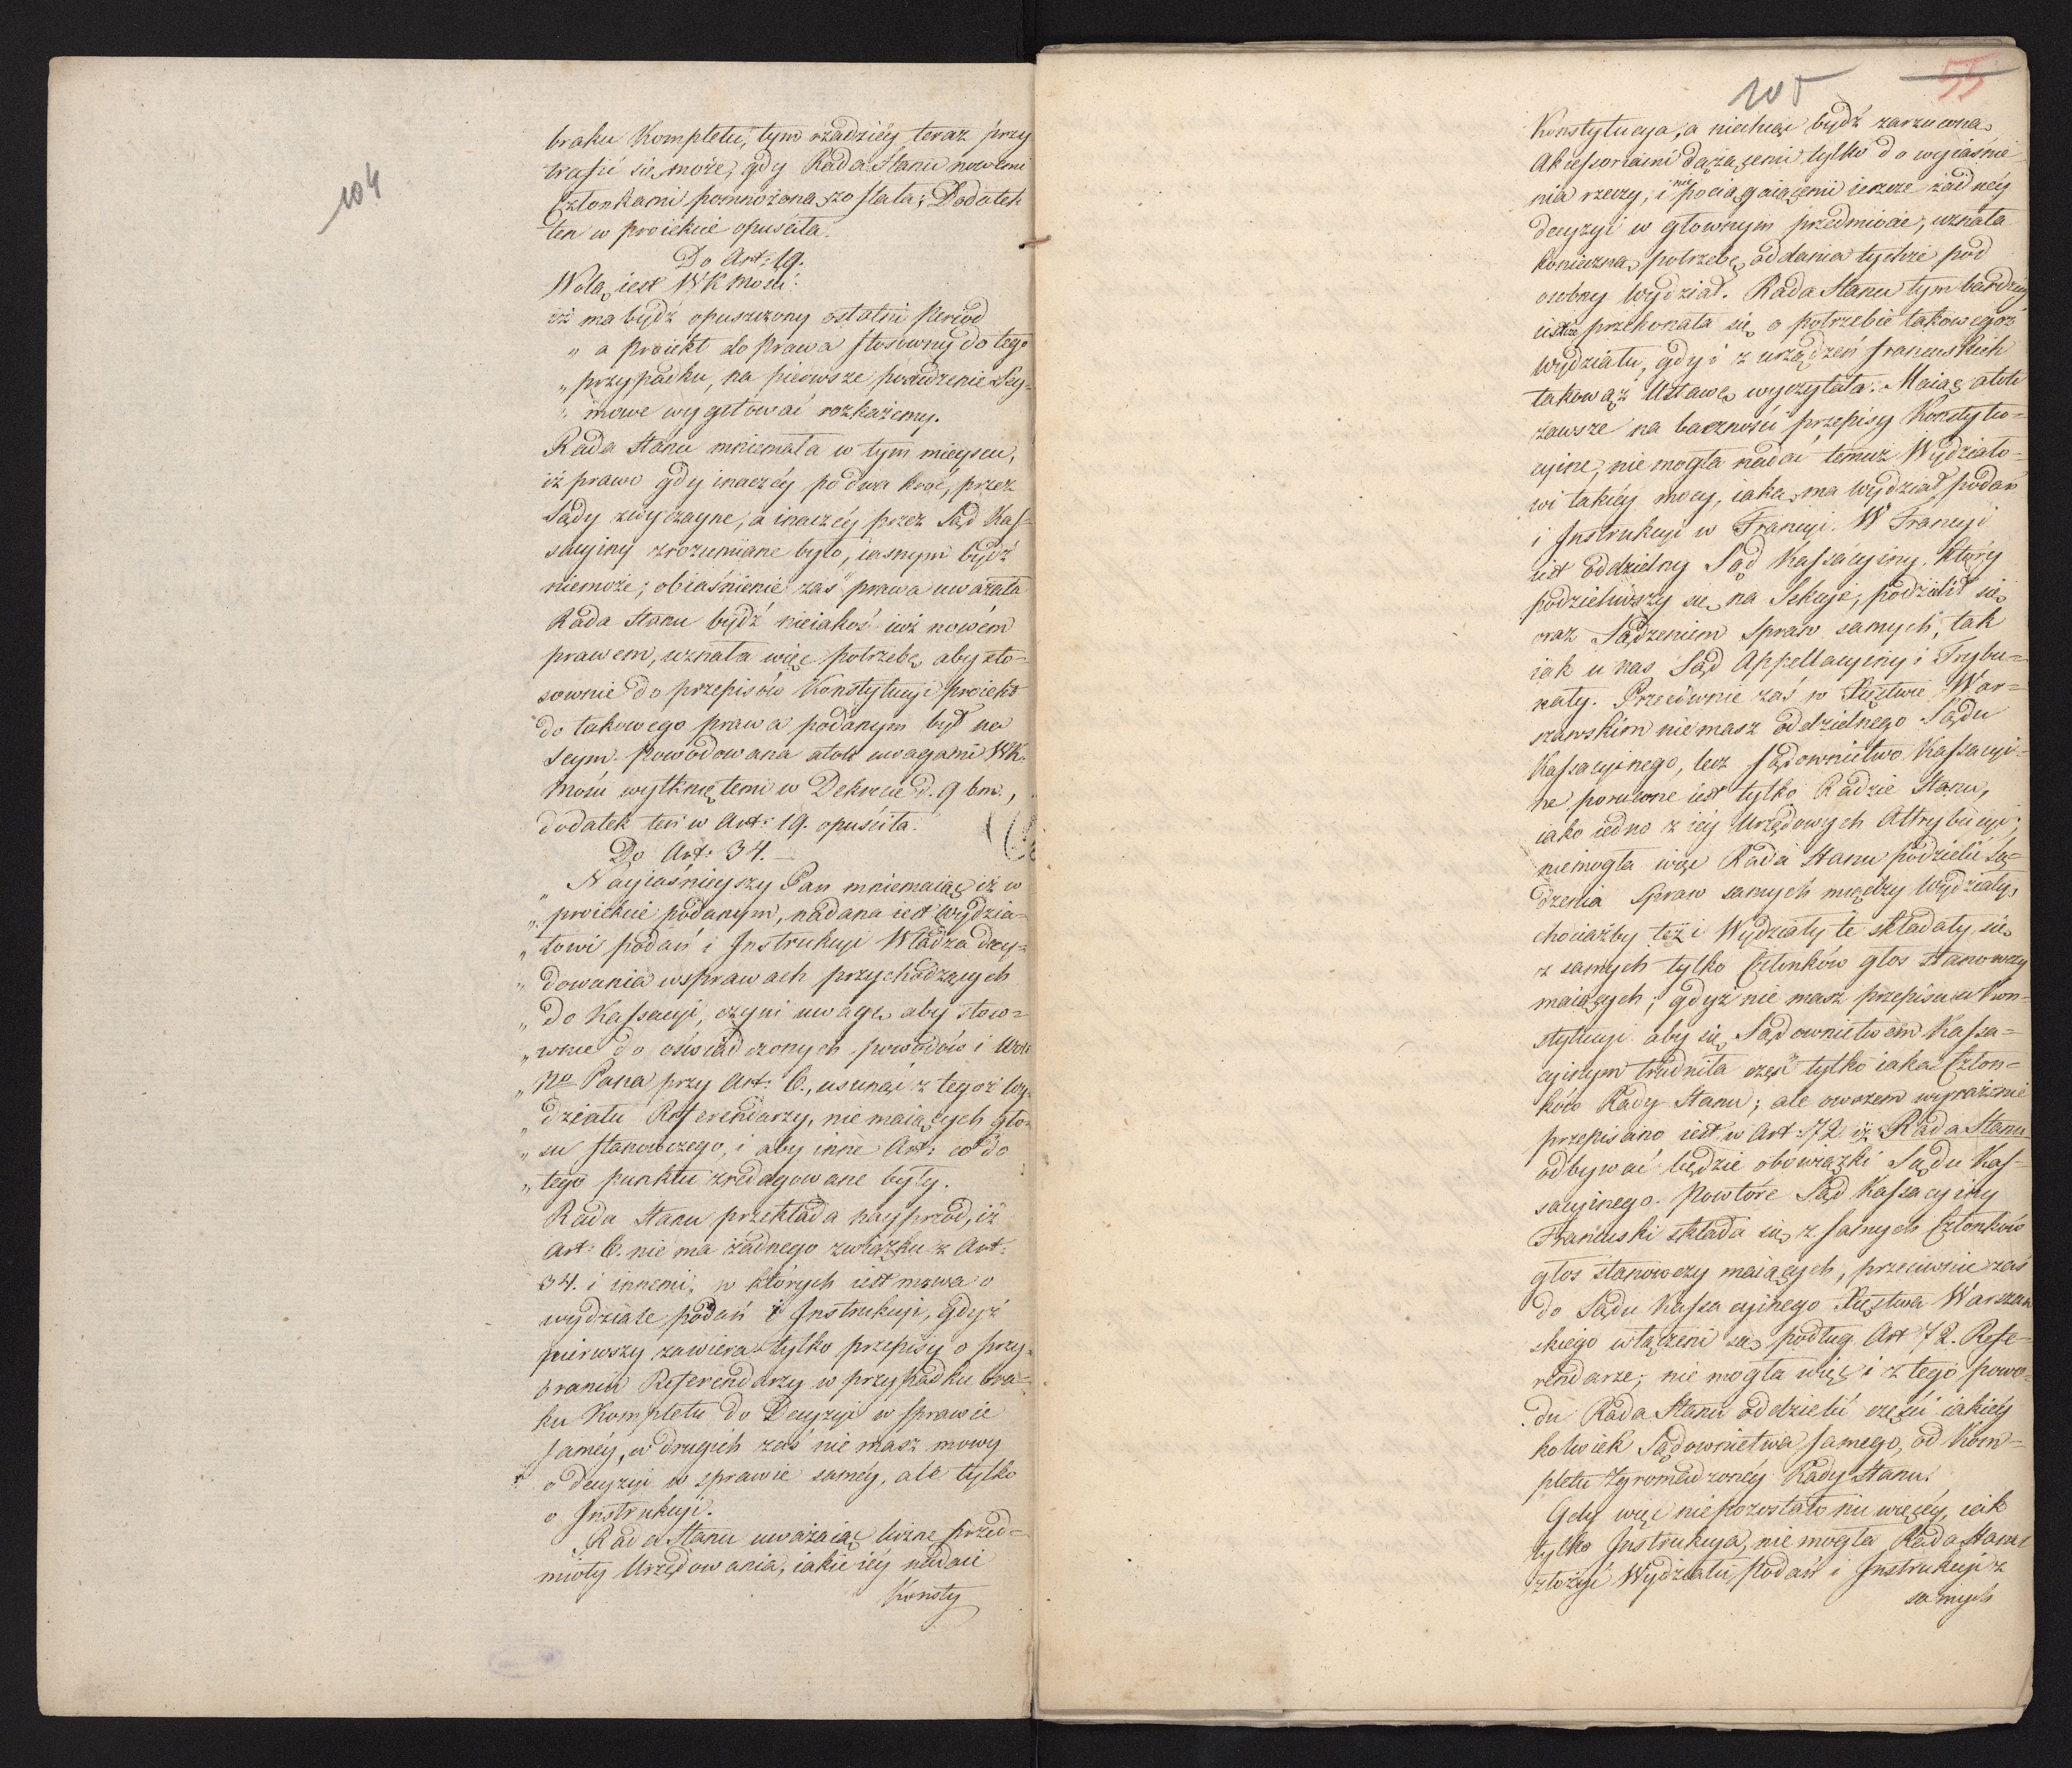 104
braku Kompletu, tym rzadziéy teraz przy
trafić się może, gdy Rada Stanu nowemi
Członkami pomnożona została; Dodatek
ten w proiekcie opuściła.
Do Art: 19.
Wolą iest WKMości:
iż ma bydź opuszczony ostatni Period
„ a proiekt do prawa stosowny do tego
„ przypadku, na pierwsze posiedzenie Sey-
„ mowe wygotować rozkażemy.
Rada Stanu mniemała w tym mieyscu,
iż prawo gdy inaczéy po dwa kroć, przez
Sądy zwyczayne, a inaczéy przez Sąd Kas-
sacyiny zrozumiane było, iasnym bydź
niemoże; obiaśnienie zaś prawa uważała
Rada Stanu bydź nieiakoś iuż nowém
prawem, uznała więc potrzebę aby sto-
sownie do przepisów Konstytucyi proiekt
do takowego prawa podanym był na
Seym. Powodowana atoli uwagami WK.
Mości wytkniętemi w Dekrecie d. 9 bm.,
dodatek ten w Art: 19. opuściła.
Do Art: 34.
„ Nayiaśnieyszy Pan mniemaiąc iż w
„ proiekcie podanym, nadana iest Wydzia-
„ łowi podań i Instrukcyi Władza decy-
„ dowania w sprawach przychodzących
„ do Kassacyi, czyni uwagę aby stow-
„ wnie do oświadczonych powodów i Woli
„ No Pana przy Art: 6., usunąć z tegoż Wy-
„ działu Referendarzy, nie maiących gło-
„ su stanowczego, i aby inne Art: co do
„ tego punktu zredagowane były.
Rada Stanu przekłada nayprzód, iż
Art: 6. nie ma żadnego związku z Art:
34. i innemi, w których iest mowa o
wydziale podań i Instrukcyi, gdyż
pierwszy zawiera tylko przepisy o przy-
braniu Referendarzy w przypadku bra-
ku Kompletu do Decyzyi w sprawie
saméy, w drugich zaś nie masz mowy
o decyzyi w sprawie saméy, ale tylko
o Instrukcyi.
Rada Stanu uważaiąc liczne przed-
mioty Urzędowania, iakie iéy nadaie
Konsty
105
55
Konstytucya, a niechcąc bydź zarzucona
Akcessoriami dążącemi tylko do wyiaśnie
nia rzeczy, i nie pociągaiącemi ieszcze żadnéy
decyzyi w głownym przedmiocie, uznała
konieczną potrzebę oddania tychże pod
osobny Wydział. Rada Stanu tym bardziéy
ieszcze przekonała się o potrzebie takowegoż
Wydziału, gdy i z urządzeń francuskich
takowąż Ustawę wyczytała. Maiąc atoli
zawsze na baczności przepisy Konstytu-
cyine, nie mogła nadać temuż Wydziało-
wi takiéy mocy, iaką ma Wydział podań
i Instrukcyi w Francyi. W Francyi
iest oddzielny Sąd Kassacyiny, który
podzieliwszy się na Sekcye, podzielił się
oraz Sądzeniem Spraw samych, tak
iak u nas Sąd Appellacyiny i Trybu-
nały. Przeciwnie zaś w Xięstwie War-
szawskim nie masz oddzielnego Sądu
Kassacyinego, lecz Sądownictwo Kassacyi-
ne poruczone iest tylko Radzie Stanu,
iako iedno z iéy Urzędowych Attrybucyi;
niemogła więc Rada Stanu podzielić Są-
dzenia Spraw samych między Wydziały,
chociażby też i Wydziały te składały się
z samych tylko Członków głos stanowczy
maiących; gdyż nie masz przepisu w Kon-
stytucyi aby się Sądownictwem Kassa-
cyinym trudniła część tylko iaka Człon-
ków Rady Stanu; ale owszem wyraźnie
przepisano iest w Art: 72. iż Rada Stanu
odbywać będzie obowiązki Sądu Kas-
sacyinego. Powtóre Sąd Kassacyiny
Francuski składa się z samych Członków
głos stanowczy maiących, przeciwnie zaś
do Sądu Kassacyinego Xięstwa Warszaw
skiego włączeni są podług Art 72. Refe-
rendarze; nie mogła więc i z tego powo-
du Rada Stanu oddzielić części iakiéy
kolwiek Sądownictwa samego, od Kom-
pletu zgromadzonéy Rady Stanu.
Gdy więc nie pozostało nic więcéy, iak
tylko Instrukcya, nie mogła Rada Stanu
złożyć Wydziału Podań i Instrukcyi z
samych